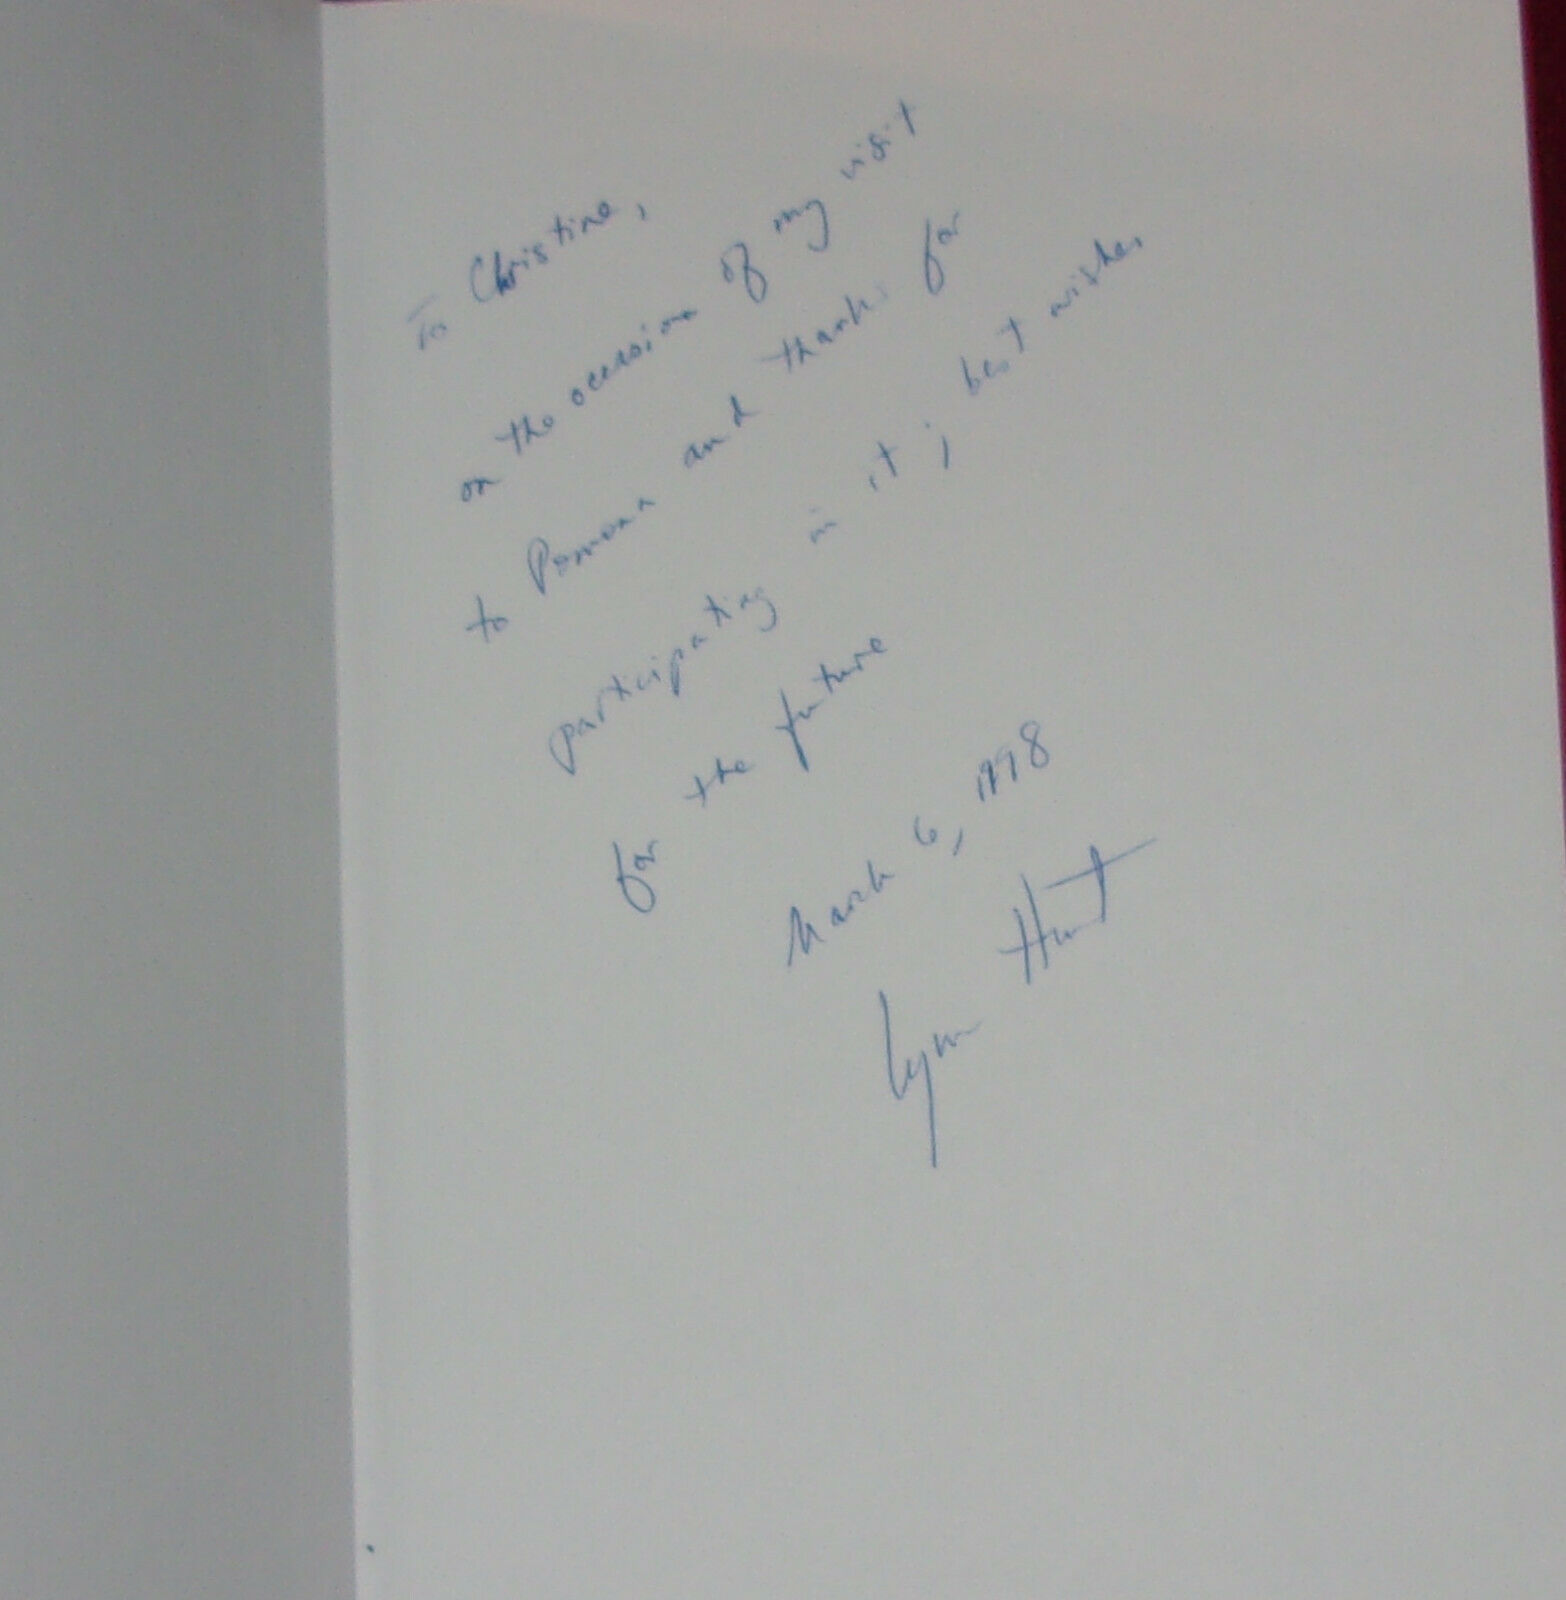 To Christine,
on the occasion of my visit
to Pomona and thanks for
participating in it; best wishes
for the future
March 6, 1998
Lynn Hunt